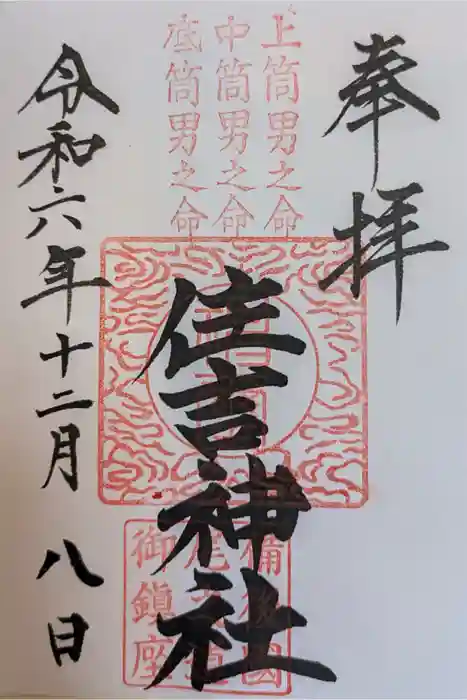 奉拝
上筒男之命
中筒男之命
底筒男之命
住吉神社
備後國
尾道
御鎮座
令和六年十二月 八日